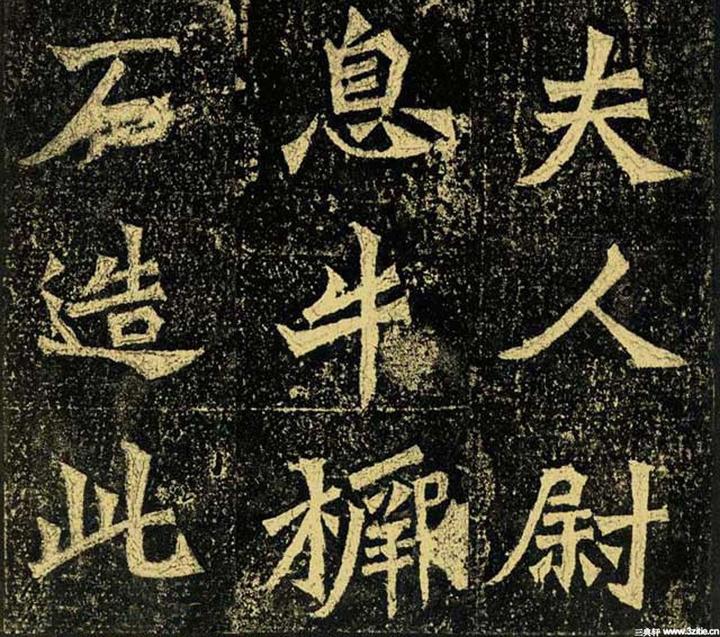 夫人尉
息牛橛
石造此
三典轩 www.3zitie.cn